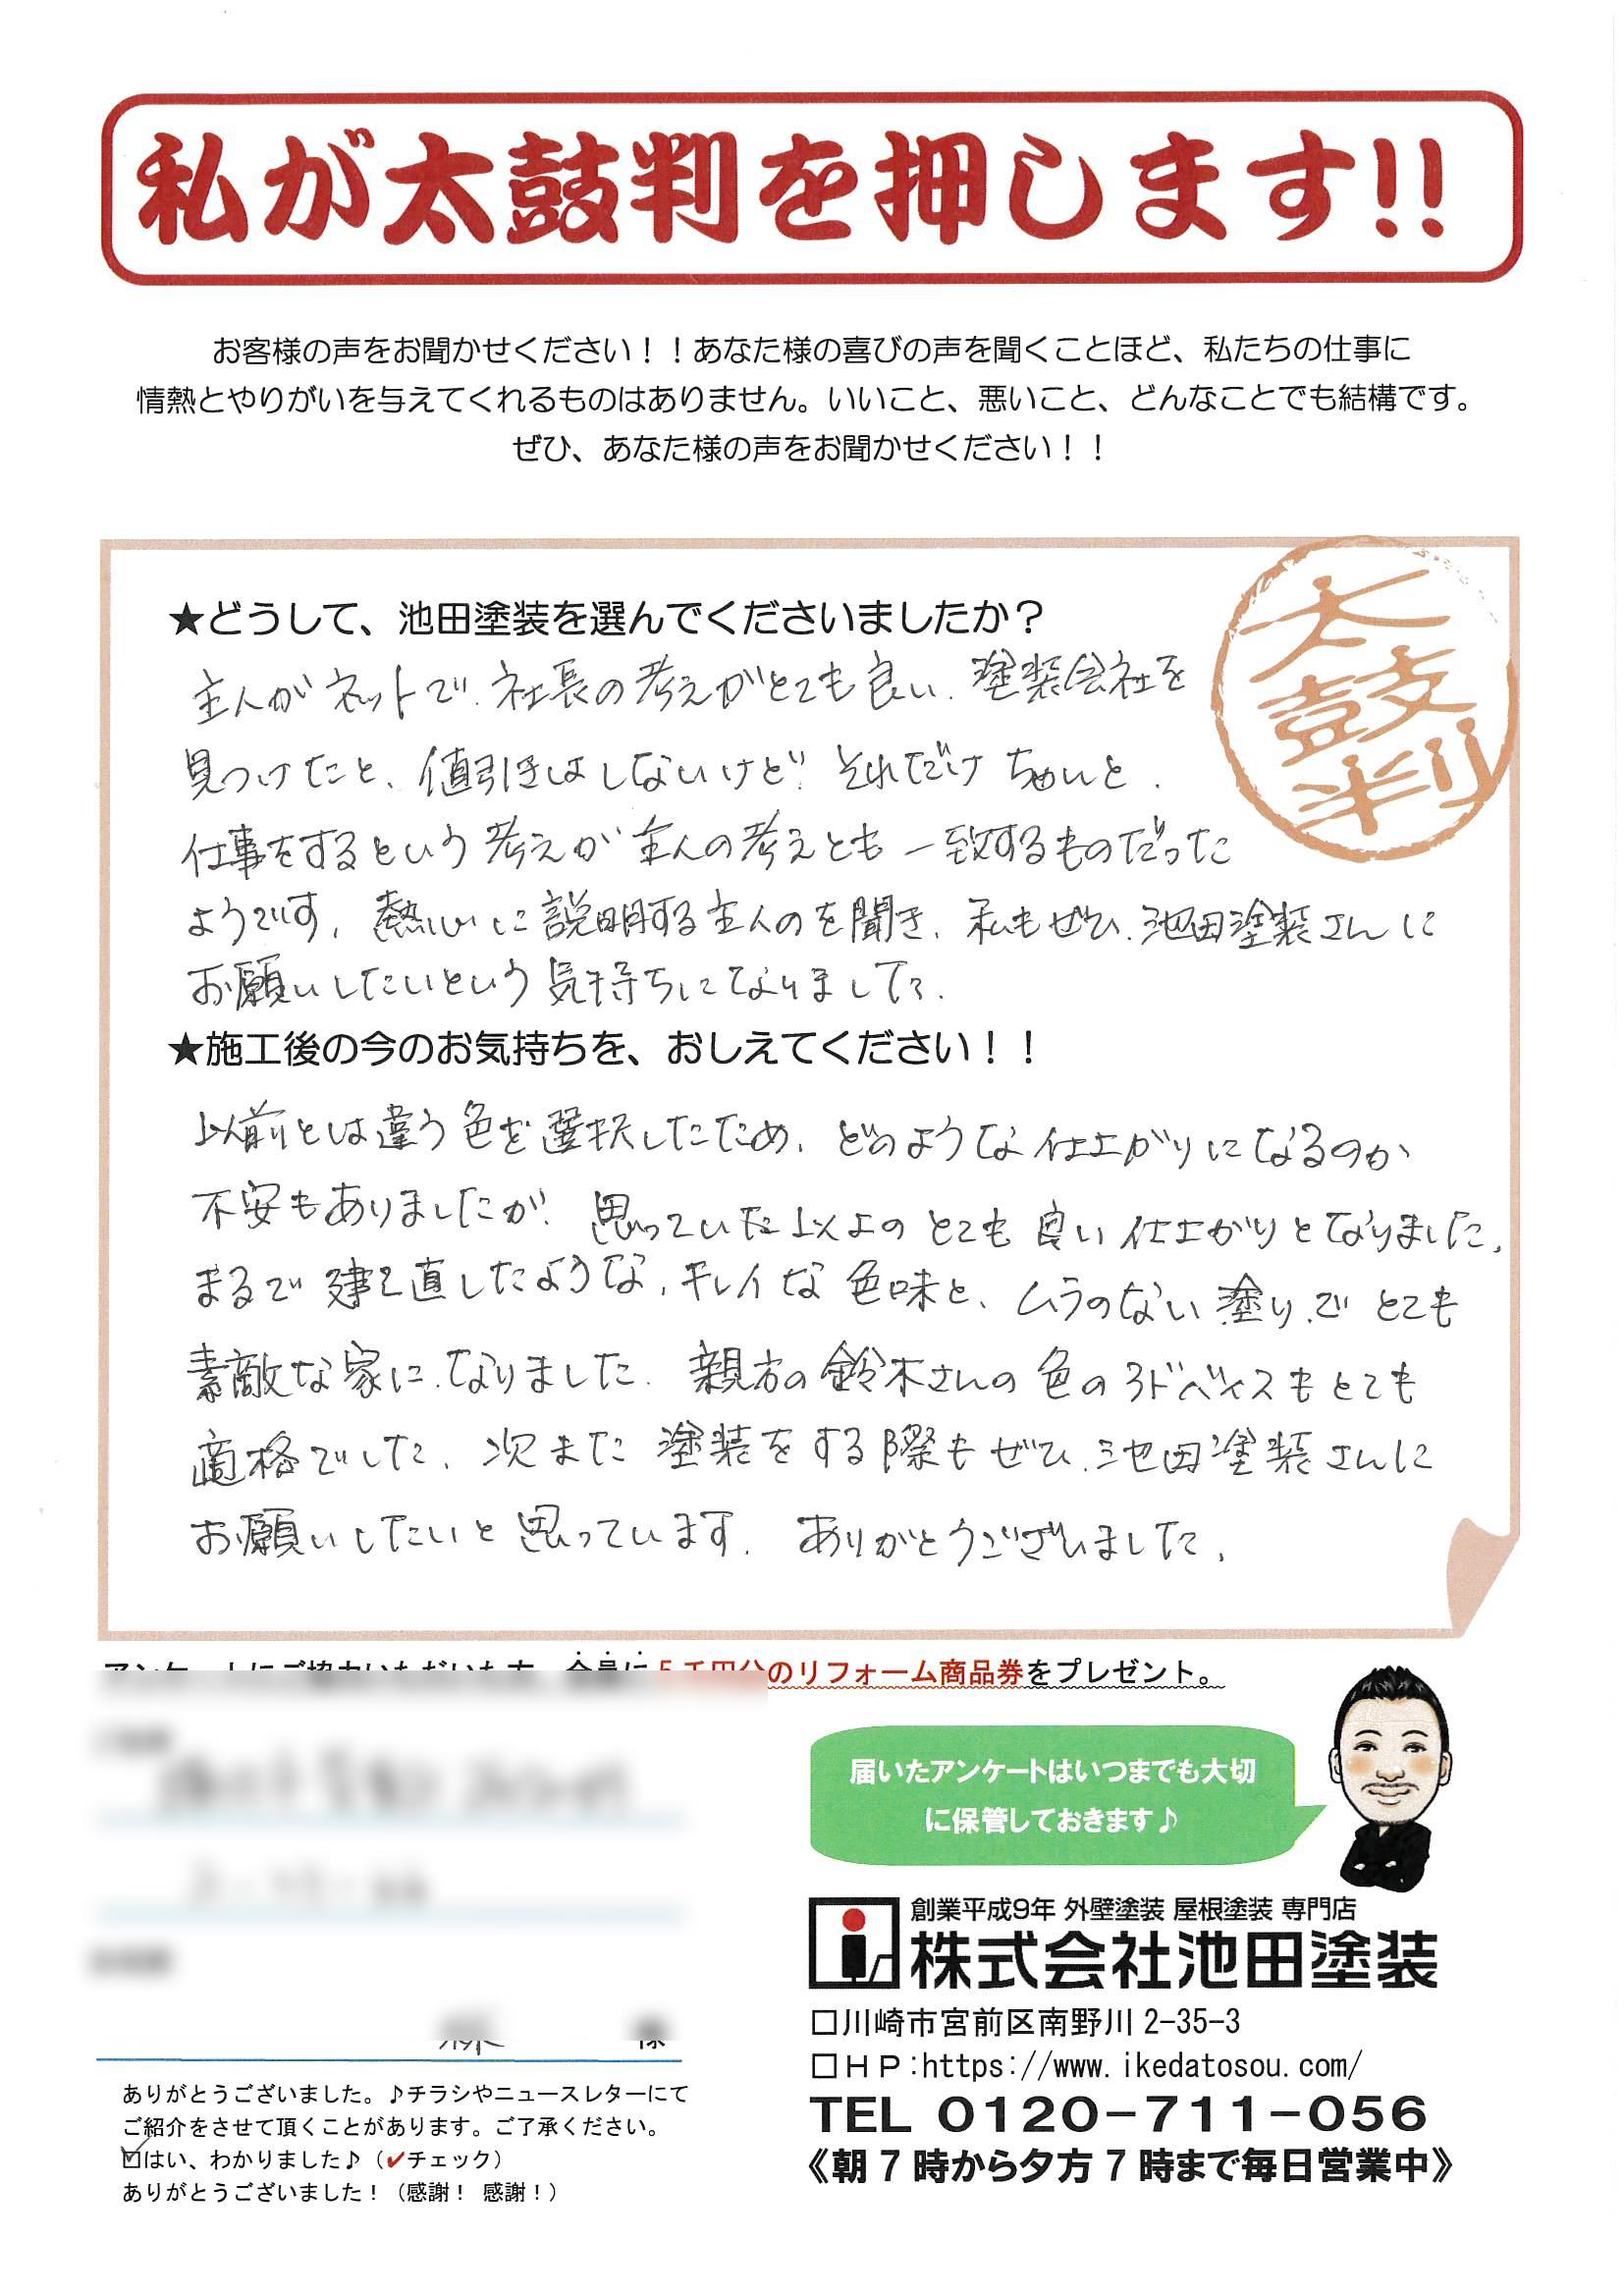 私が太鼓判を押します!!
お客様の声をお聞かせください！！あなた様の喜びの声を聞くことほど、私たちの仕事に
情熱とやりがいを与えてくれるものはありません。いいこと、悪いこと、どんなことでも結構です。
ぜひ、あなた様の声をお聞かせください！！
太鼓判
★どうして、池田塗装を選んでくださいましたか？
主人がネットで、社長の考えがとても良い、塗装会社を
見つけたと、値引きはしないけど、それだけちゃんと、
仕事をするという考えが主人の考えとも一致するものだった
ようです。熱心に説明する主人のを聞き、私もぜひ、池田塗装さんに
お願いしたいという気持ちになりました。
★施工後の今のお気持ちを、おしえてください！！
以前とは違う色を選択したため、どのような仕上がりになるのか
不安もありましたが、思っていた以上のとても良い仕上がりとなりました。
まるで建て直したような、キレイな色味と、ムラのない塗りで、とても
素敵な家に、なりました。親方の鈴木さんの色のアドバイスもとても
適格でした。次また塗装をする際もぜひ、池田塗装さんに
お願いしたいと思っています。ありがとうございました。
アンケートにご協力いただいた方、全員に５千円分のリフォーム商品券をプレゼント。
届いたアンケートはいつまでも大切
に保管しておきます♪
様
創業平成9年 外壁塗装 屋根塗装 専門店
株式会社池田塗装
□川崎市宮前区南野川 2-35-3
□ＨＰ:https://www.ikedatosou.com/
TEL 0120-711-056
《朝７時から夕方７時まで毎日営業中》
ありがとうございました。♪チラシやニュースレターにて
ご紹介をさせて頂くことがあります。ご了承ください。
☑はい、わかりました♪（✔チェック）
ありがとうございました！（感謝！ 感謝！）